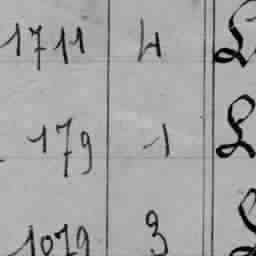 1711 4 L
179 1 L
1079 3 L